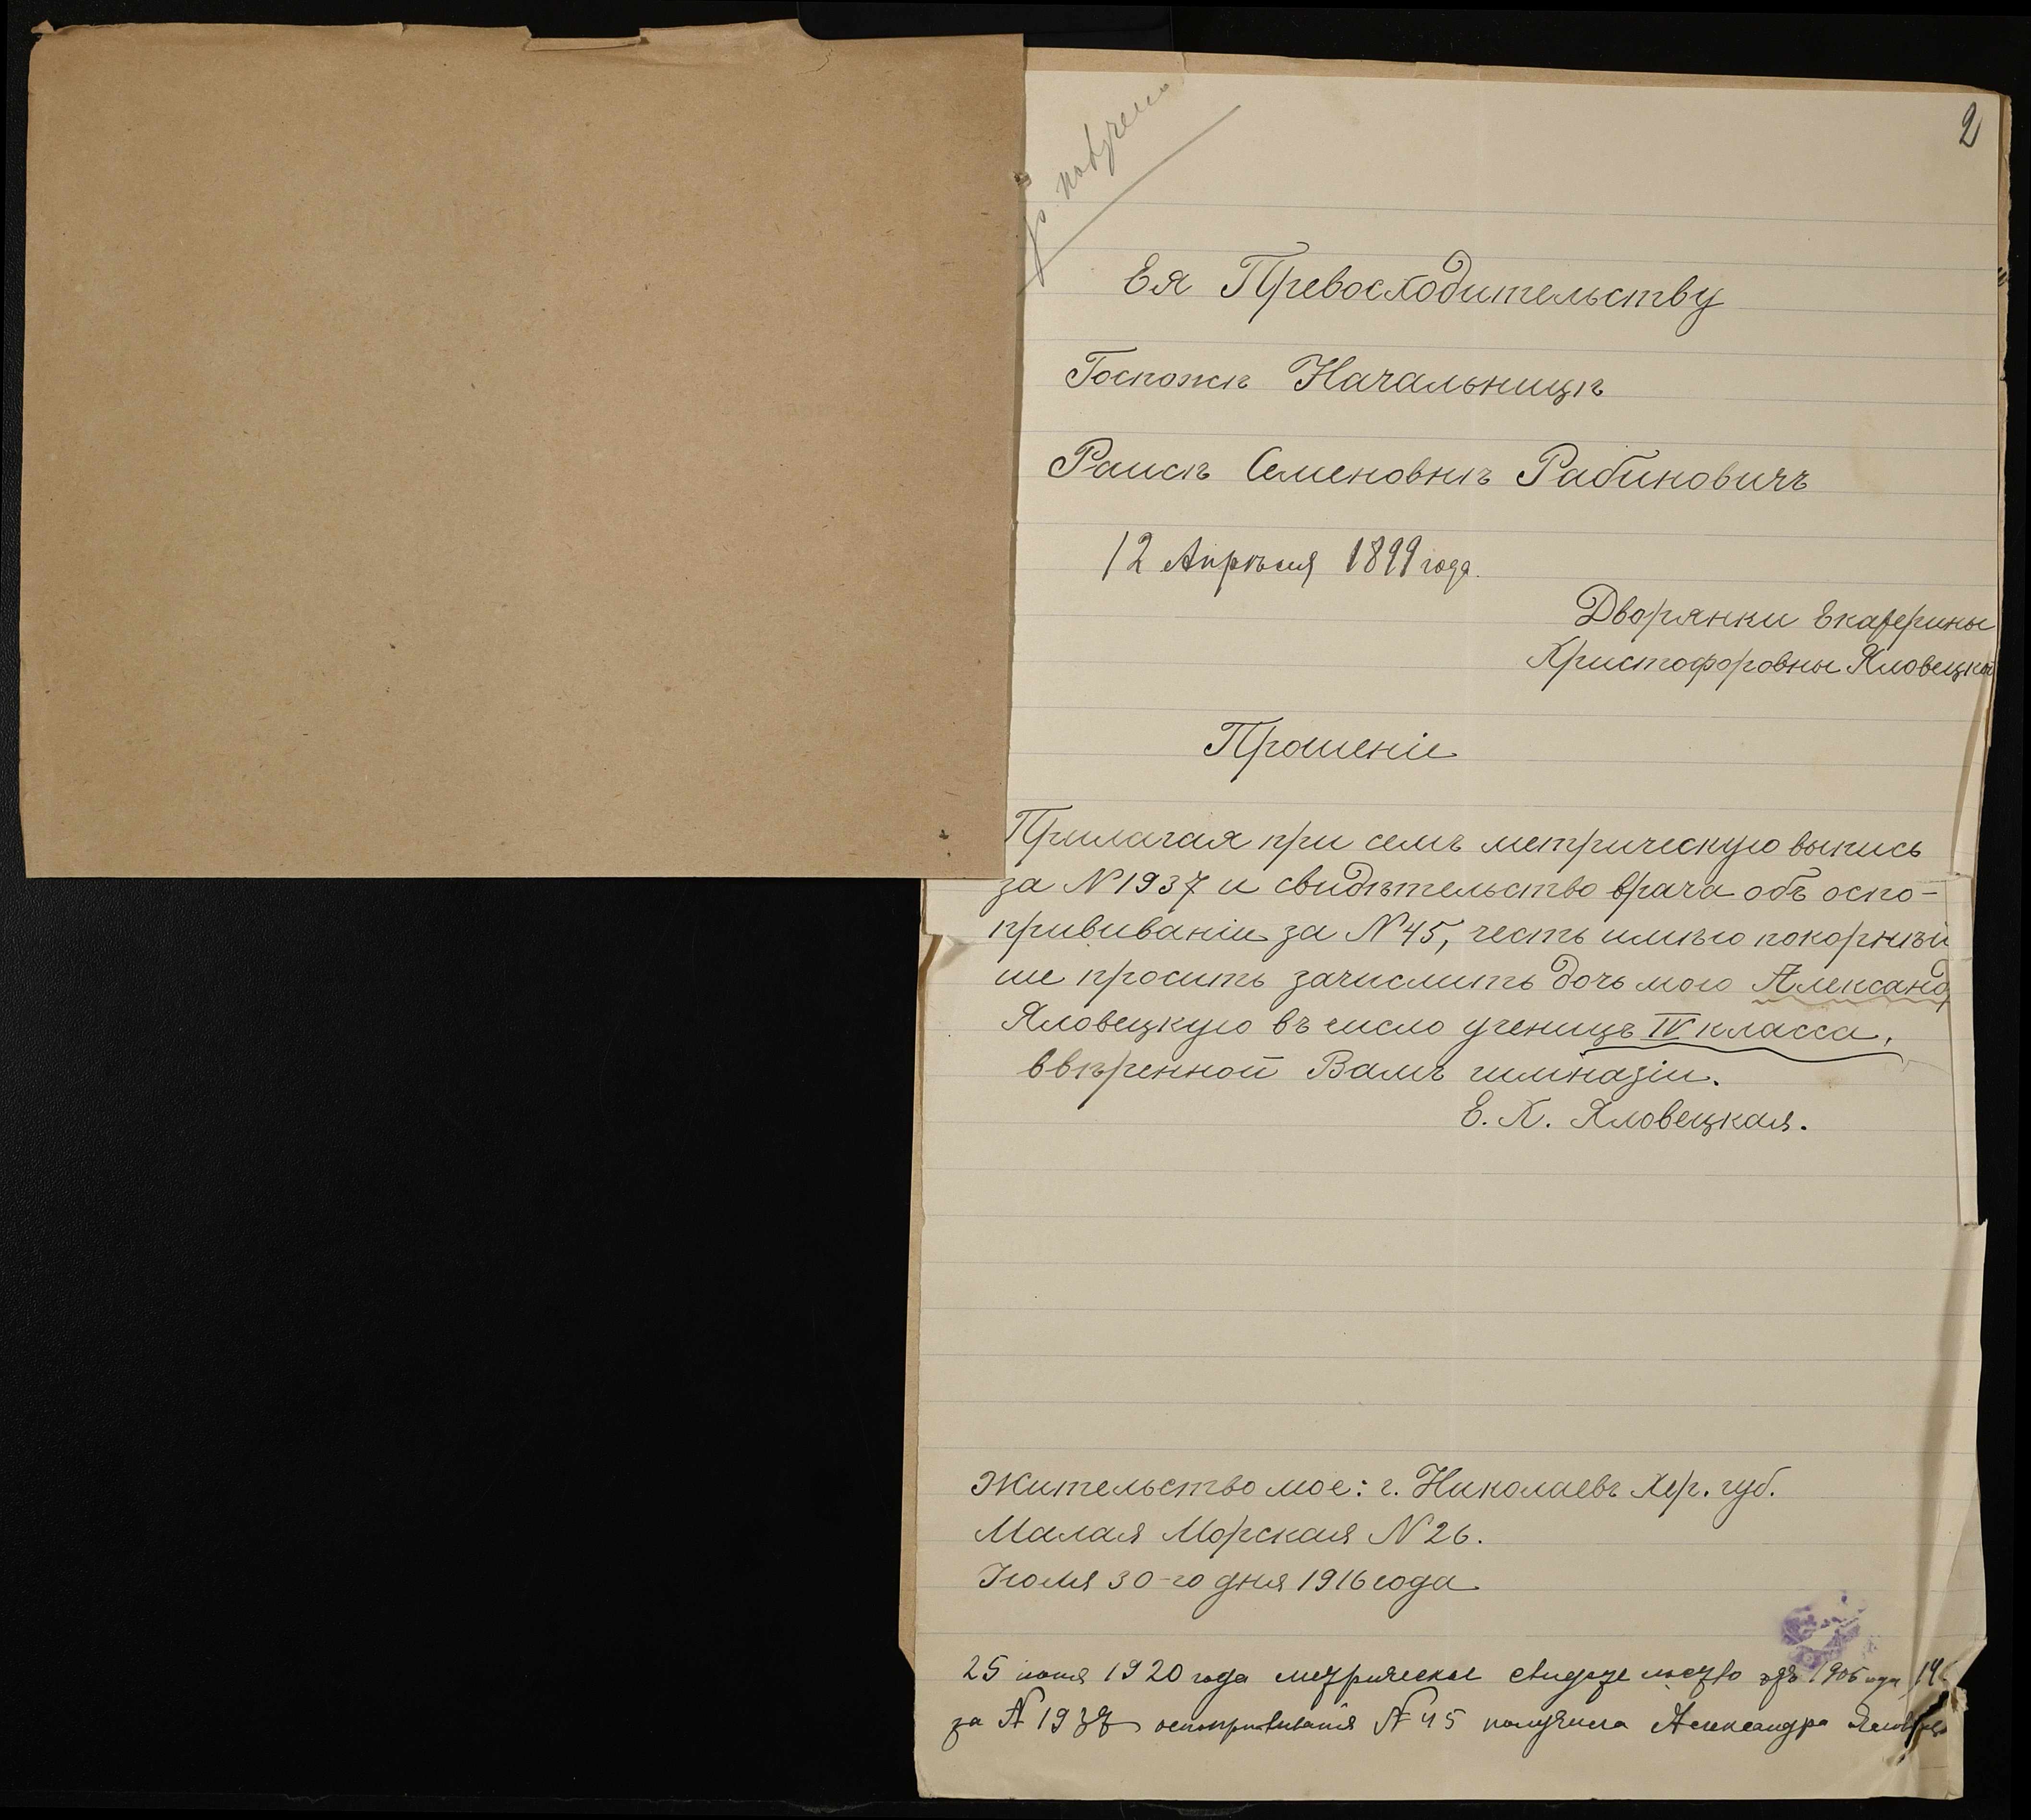 2
Ея Превосходительству
Госпожѣ Начальницѣ
Раисѣ Семеновнѣ Рабиновичъ
12 Апрѣля 1899 года.
Дворянки Екатерины
Христофоровны Яловецкой
Прошеніе
Прилагая при семъ метрическую выпись
за № 1937 и свидѣтельство врача объ оспо-
прививаніи за № 45, честь имѣю покорнѣй
ше просить зачислить дочь мою Александ
Яловецкую въ число ученицъ IV класса,
ввѣренной Вамъ гимназіи.
Е. Х. Яловецкая.
Жительство мое: г. Николаевъ Хер. губ.
Малая Морская № 26.
Іюля 30-го дня 1916 года
25 іюня 1920 года метрическое свидетельство отъ 1906 года
за № 1937 оспопрививанія № 45 получила Александра